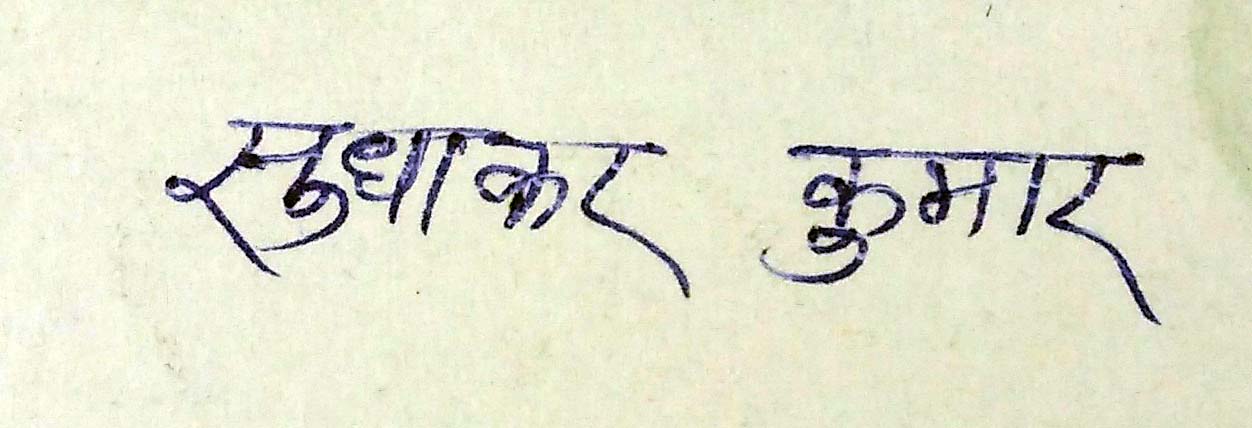 सुधाकर कुमार